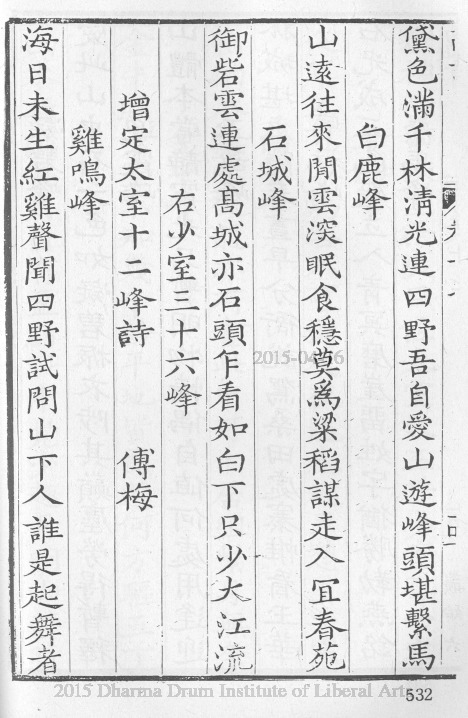 黛色滿千林清光連四野吾自愛山遊峰頭堪繫馬
白鹿峰
山遠往來閒雲深眠食穩莫爲粱稻謀走入宜春苑
石城峰
御砦雲連處髙城亦石頭乍看如白下只少大江流
右少室三十六峰
增定太室十二峰詩 傅梅
雞鳴峰
海日未生紅雞聲聞四野試問山下人誰是起舞者
532
2015 Dharma Drum Institute of Liberal Arts